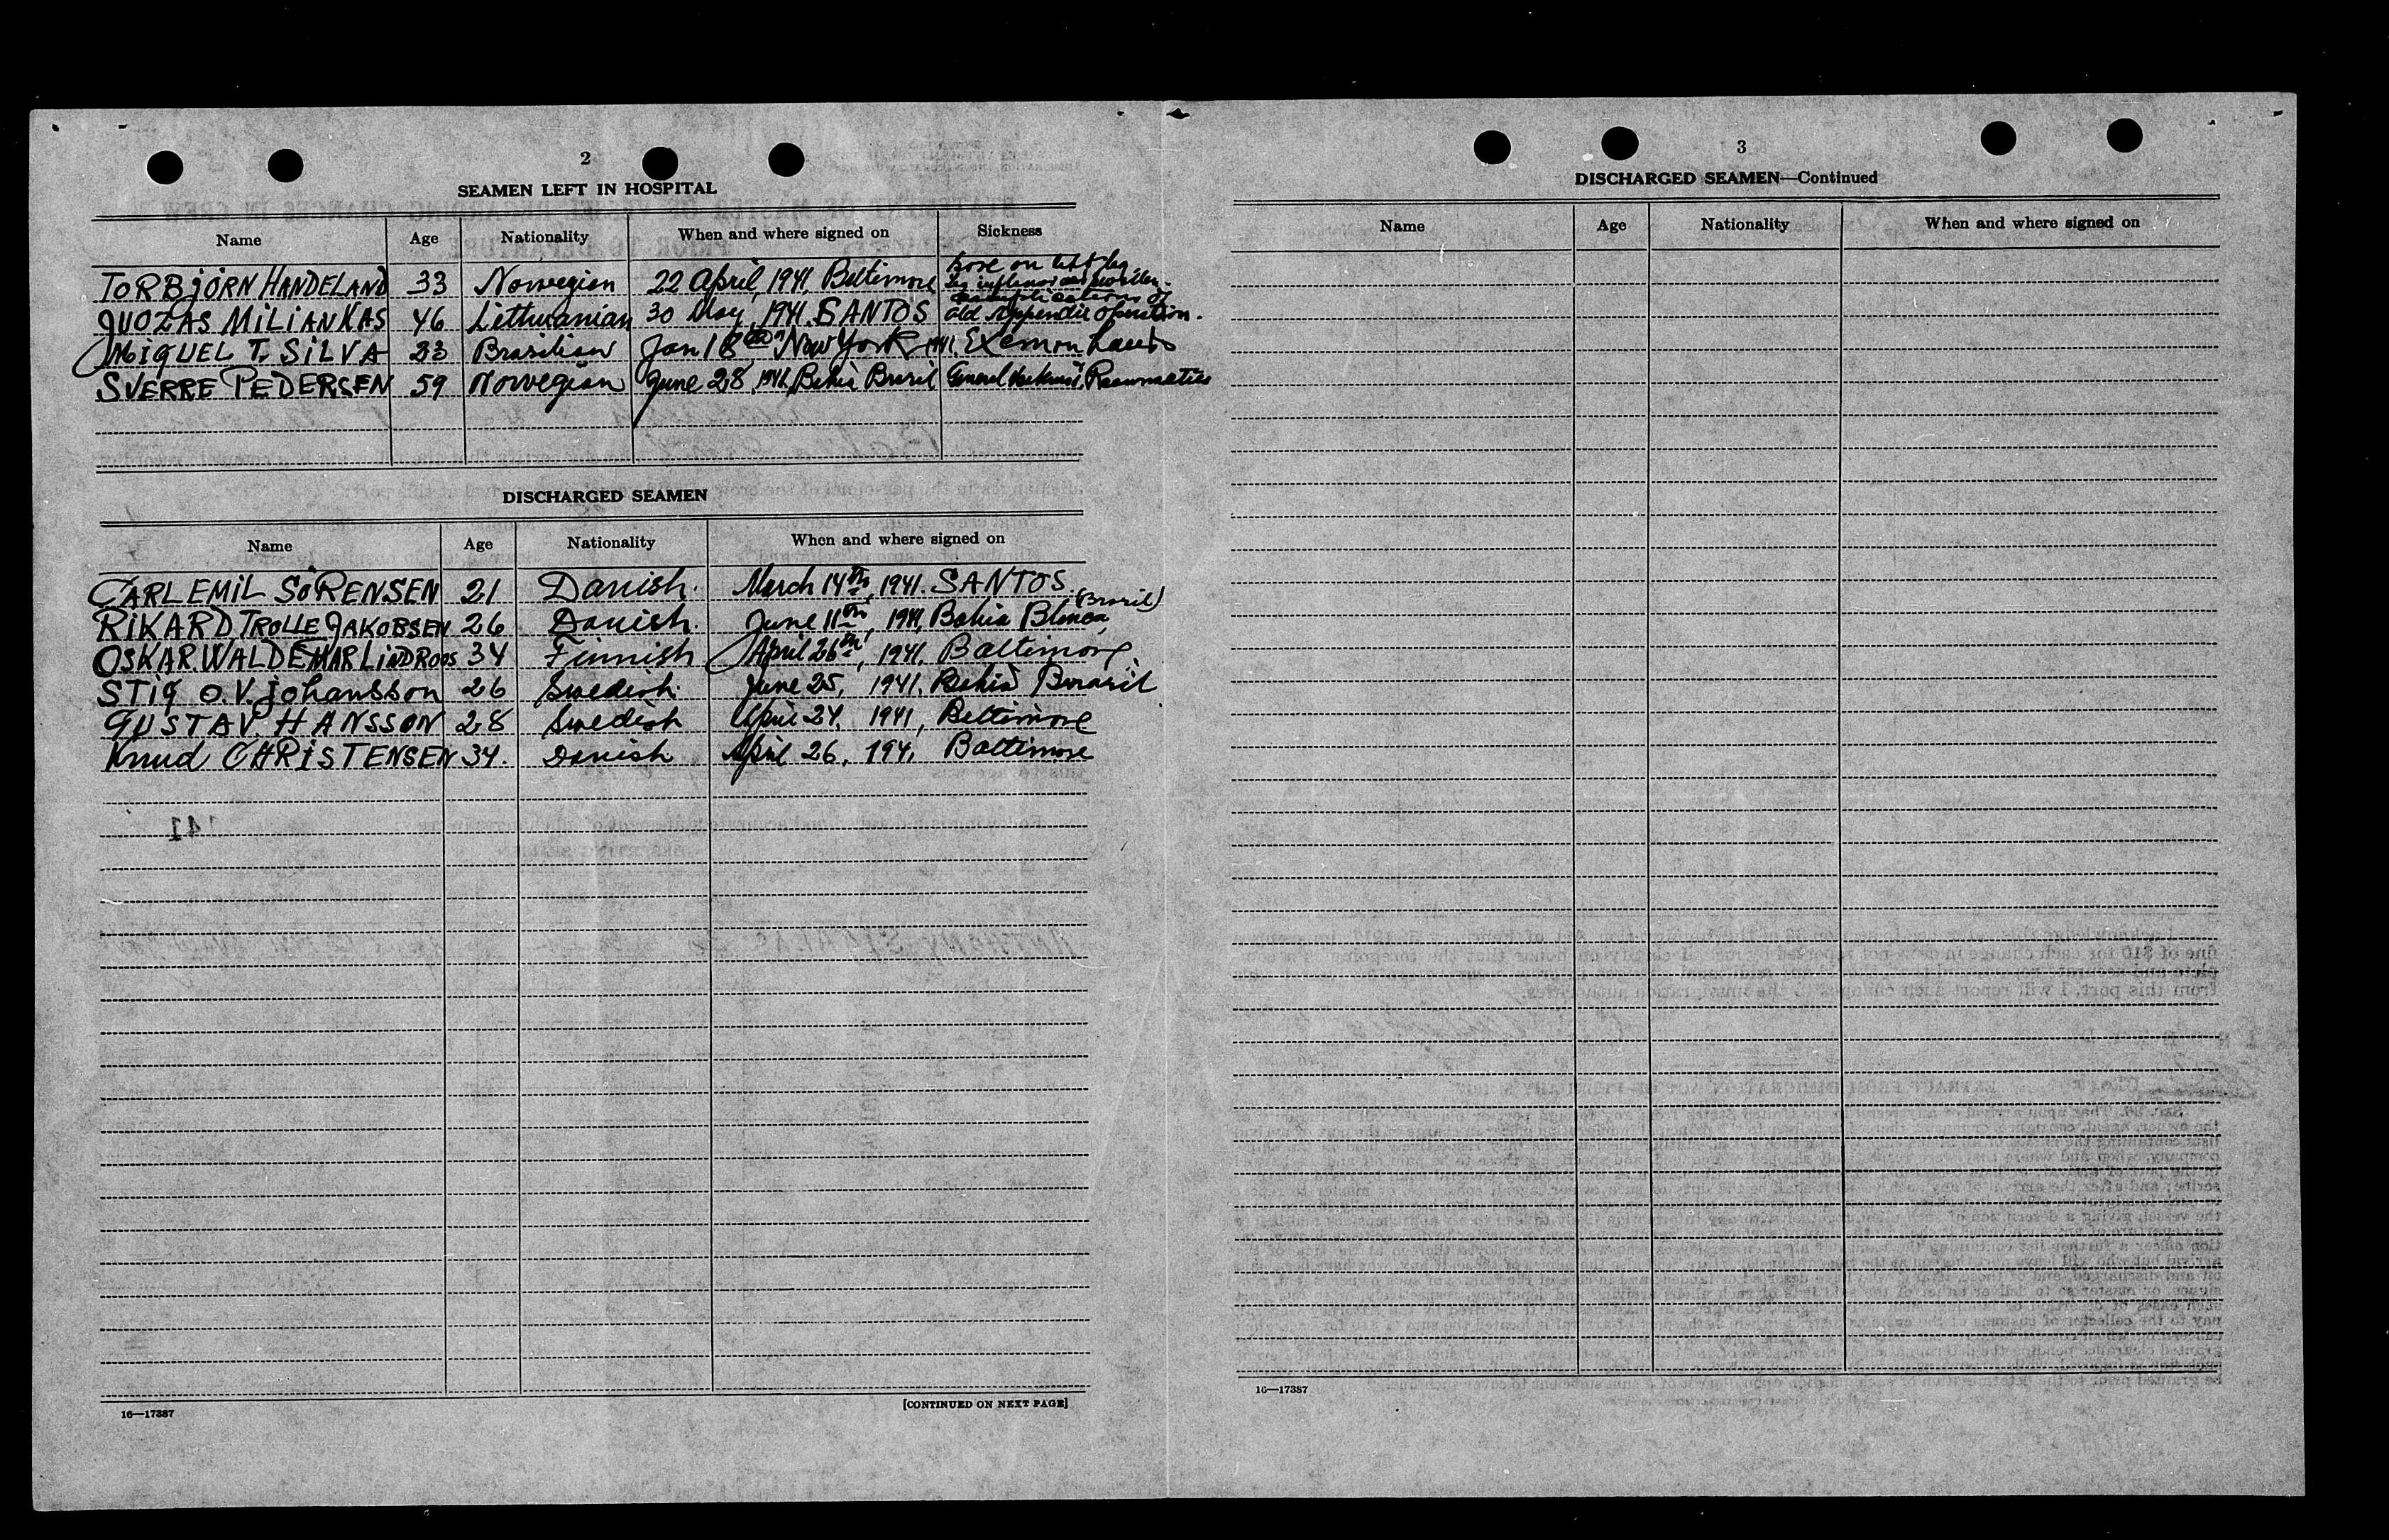 2
SEAMEN LEFT IN HOSPITAL
Name Age Nationality When and where signed on Sickness
TORBJÖRN HANDELAND 33 Norwegian 22 April, 1941 Baltimore Sore on left leg
JUOZAS MiLiANKAS 46 Lithuanian 30 May, 1941. SANTOS complications of old Appendix Operation.
MiGUEL T. SiLVA 23 Brasilian Jan 18 New York 1941. Exem on hands
SVERRE PEDERSEN 59 Norwegian June 28, 1941, Bahia Brasil General
DISCHARGED SEAMEN
Name Age Nationality When and where signed on
CARL EMiL SÖRENSEN 21 Danish. March 14th, 1941. SANTOS (Brasil)
RiKARD TROLLE JAKOBSEN 26 Danish. June 11th, 1941, Bahia Blanca
OSKAR WALDEMAR LiNDROOS 34 Finnish April 26th, 1941. Baltimore
STig O.V. johansson 26 Swedish. June 25, 1941. Bahia Brasil
GUSTAV. HANSSON 28 Swedish April 24, 1941, Baltimore
Knud CHRiSTENSEN 34. Danish April 26, 194, Baltimore
16—17387
[CONTINUED ON NEXT PAGE]
3
DISCHARGED SEAMEN—Continued
Name Age Nationality When and where signed on
16—17387